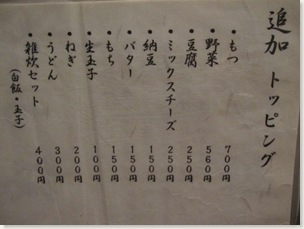 追加 トッピング
• もつ 700円
• 野菜 560円
• 豆腐 250円
• ミックスチーズ 250円
• 納豆 150円
• バター 150円
• もち 150円
• 生玉子 100円
• ねぎ 200円
• うどん 300円
• 雑炊セット 400円
(白飯・玉子)